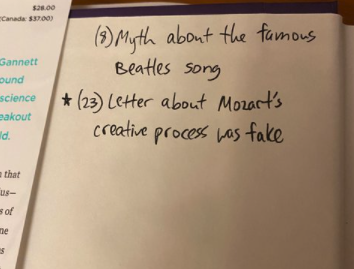 $28.00
(Canada: $37.00)
Gannett
ound
science
eakout
d.
that
us—
s of
ne
s
(8) Myth about the famous
Beatles song
★ (23) Letter about Mozart's
creative process was fake